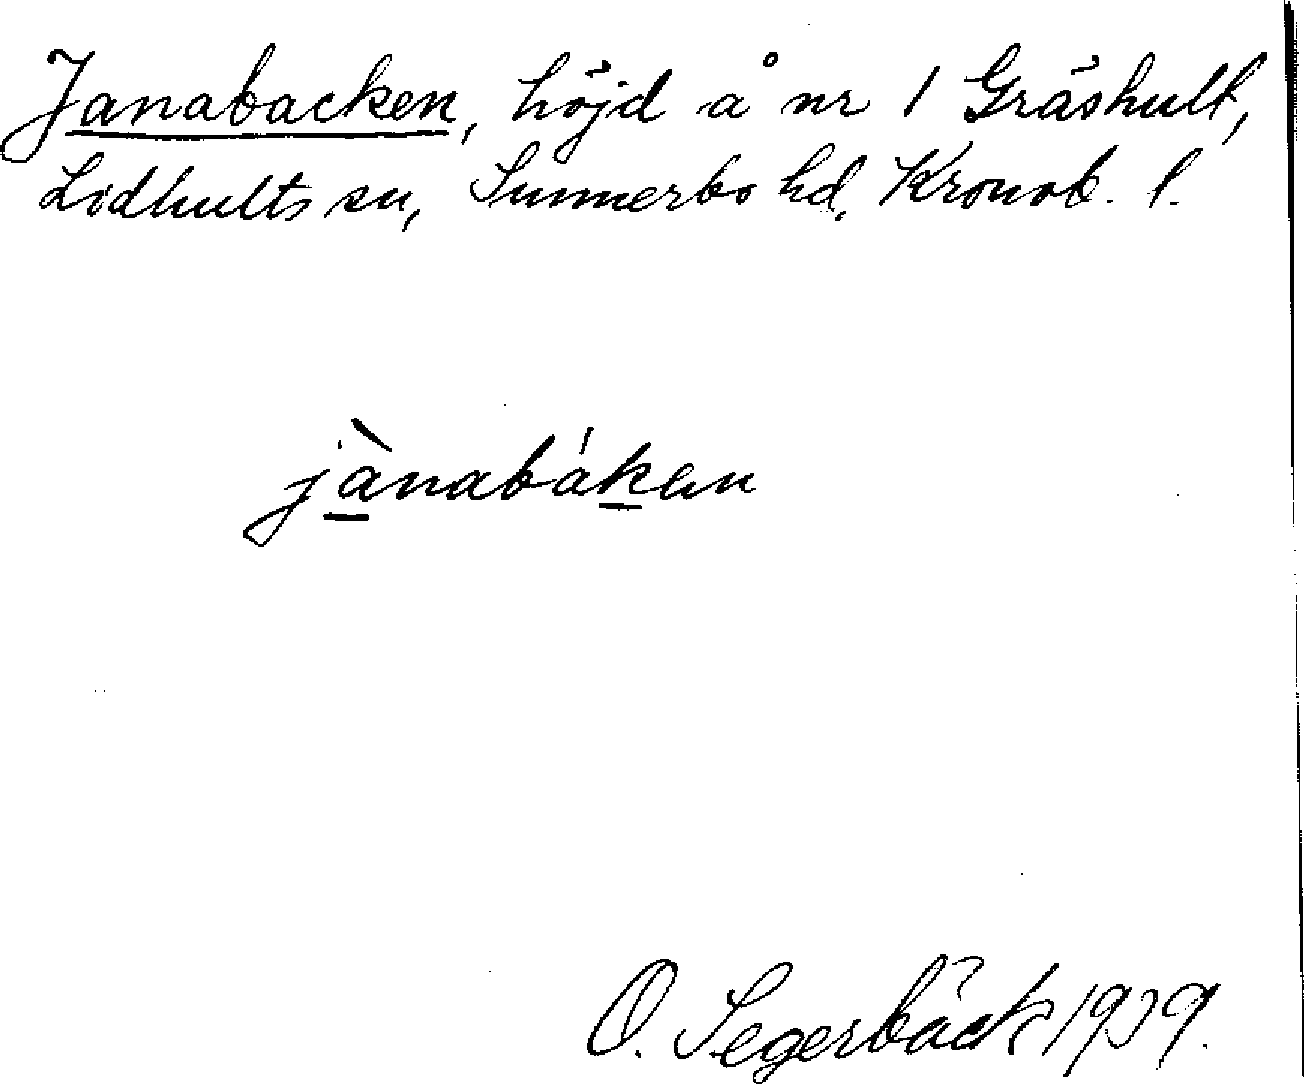 Janabacken, höjd å nr 1 Gräshult,
Lidhults sn, Sunnerbo hd, Kronob. l.
jànabáken
O. Segerbäck 1939.